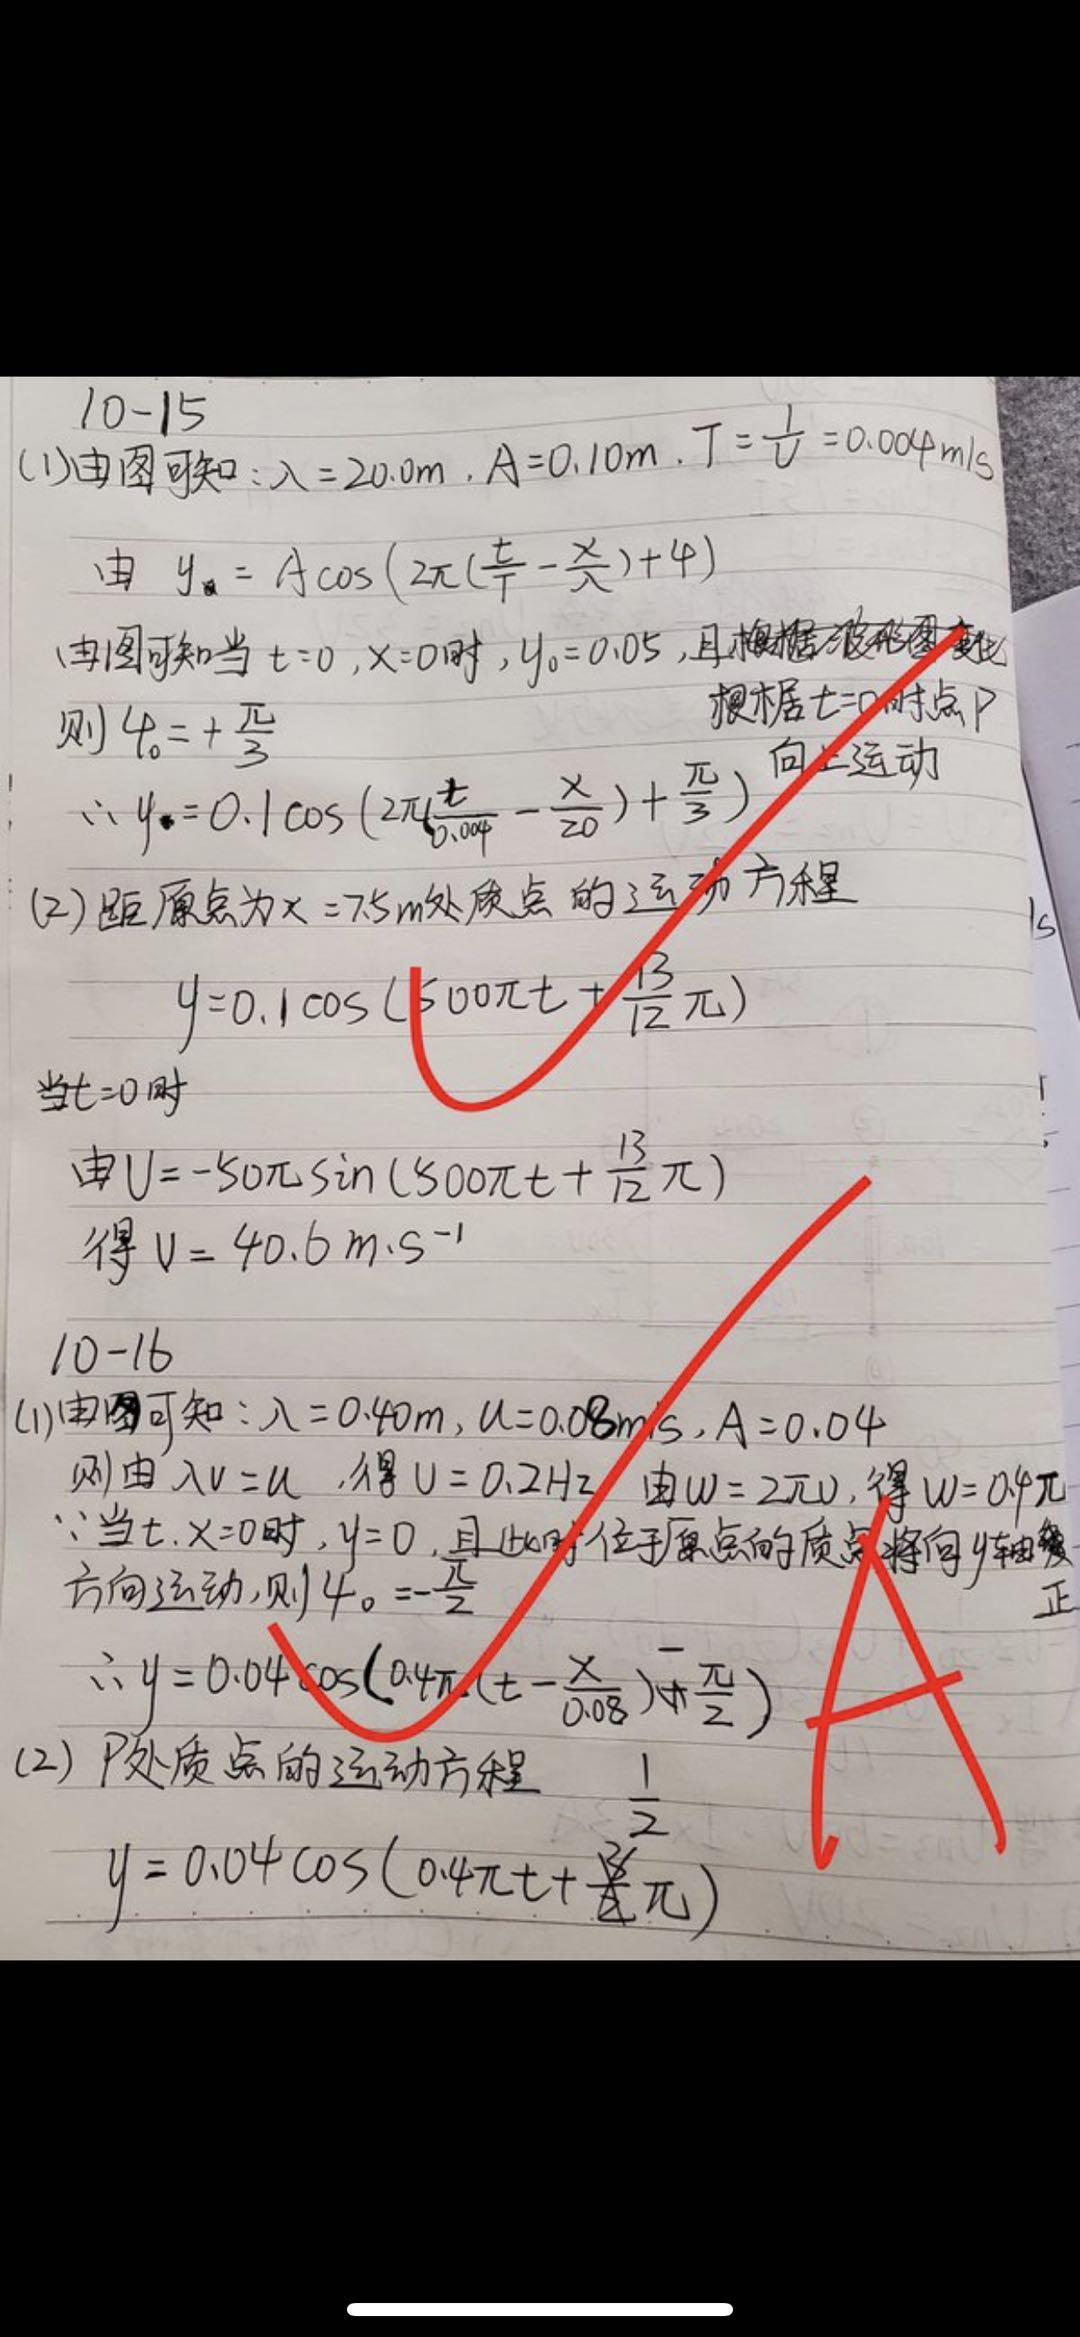 10-15
(1)由图可知:λ=20.0m,A=0.10m.T=1/υ=0.004m/s
由 y = Acos(2π(t/T-x/λ)+φ)
由图可知当t=0,x=0时,y₀=0.05,且
根据t=0时点P
则φ₀=+π/3
向上运动
∴y=0.1cos(2π(t/0.004-x/20)+π/3)
(2)距原点为x=7.5m处质点的运动方程
y=0.1cos(500πt+13/12π)
当t=0时
由υ=-50πsin(500πt+13/12π)
得υ=40.6m·s⁻¹
10-16
(1)由图可知:λ=0.40m,u=0.08m/s,A=0.04
则由λν=u,得υ=0.2Hz 由ω=2πυ,得ω=0.4π
∵当t.x=0时,y=0,且此时位于原点的质点将向y轴
正
方向运动,则φ₀=-π/2
∴y=0.04cos(0.4π(t-x/0.08)-π/2)
(2)P处质点的运动方程
y=0.04cos(0.4πt+1/2π)
A